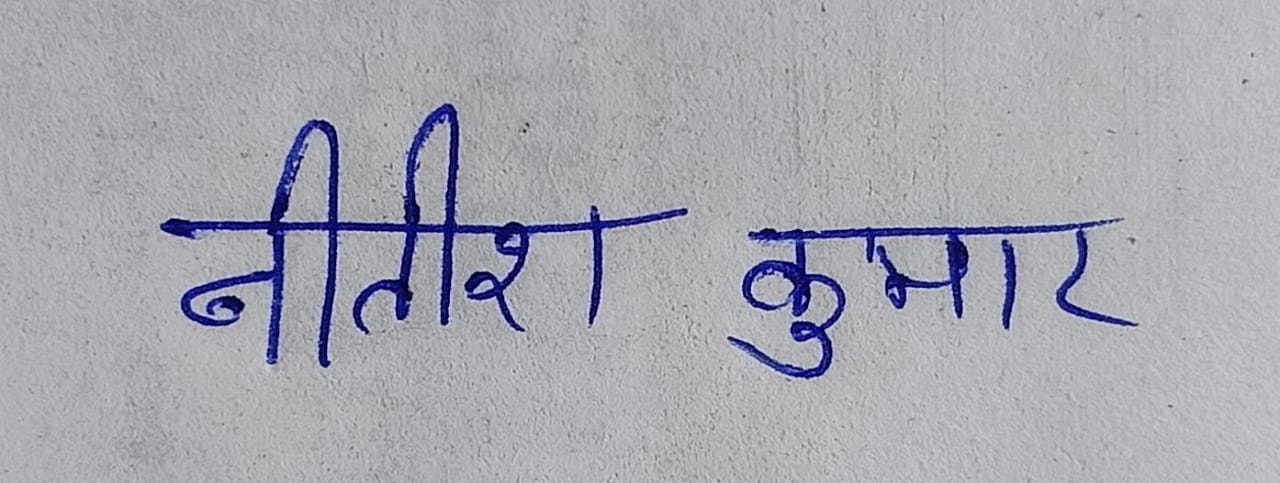 नीतीश कुमार